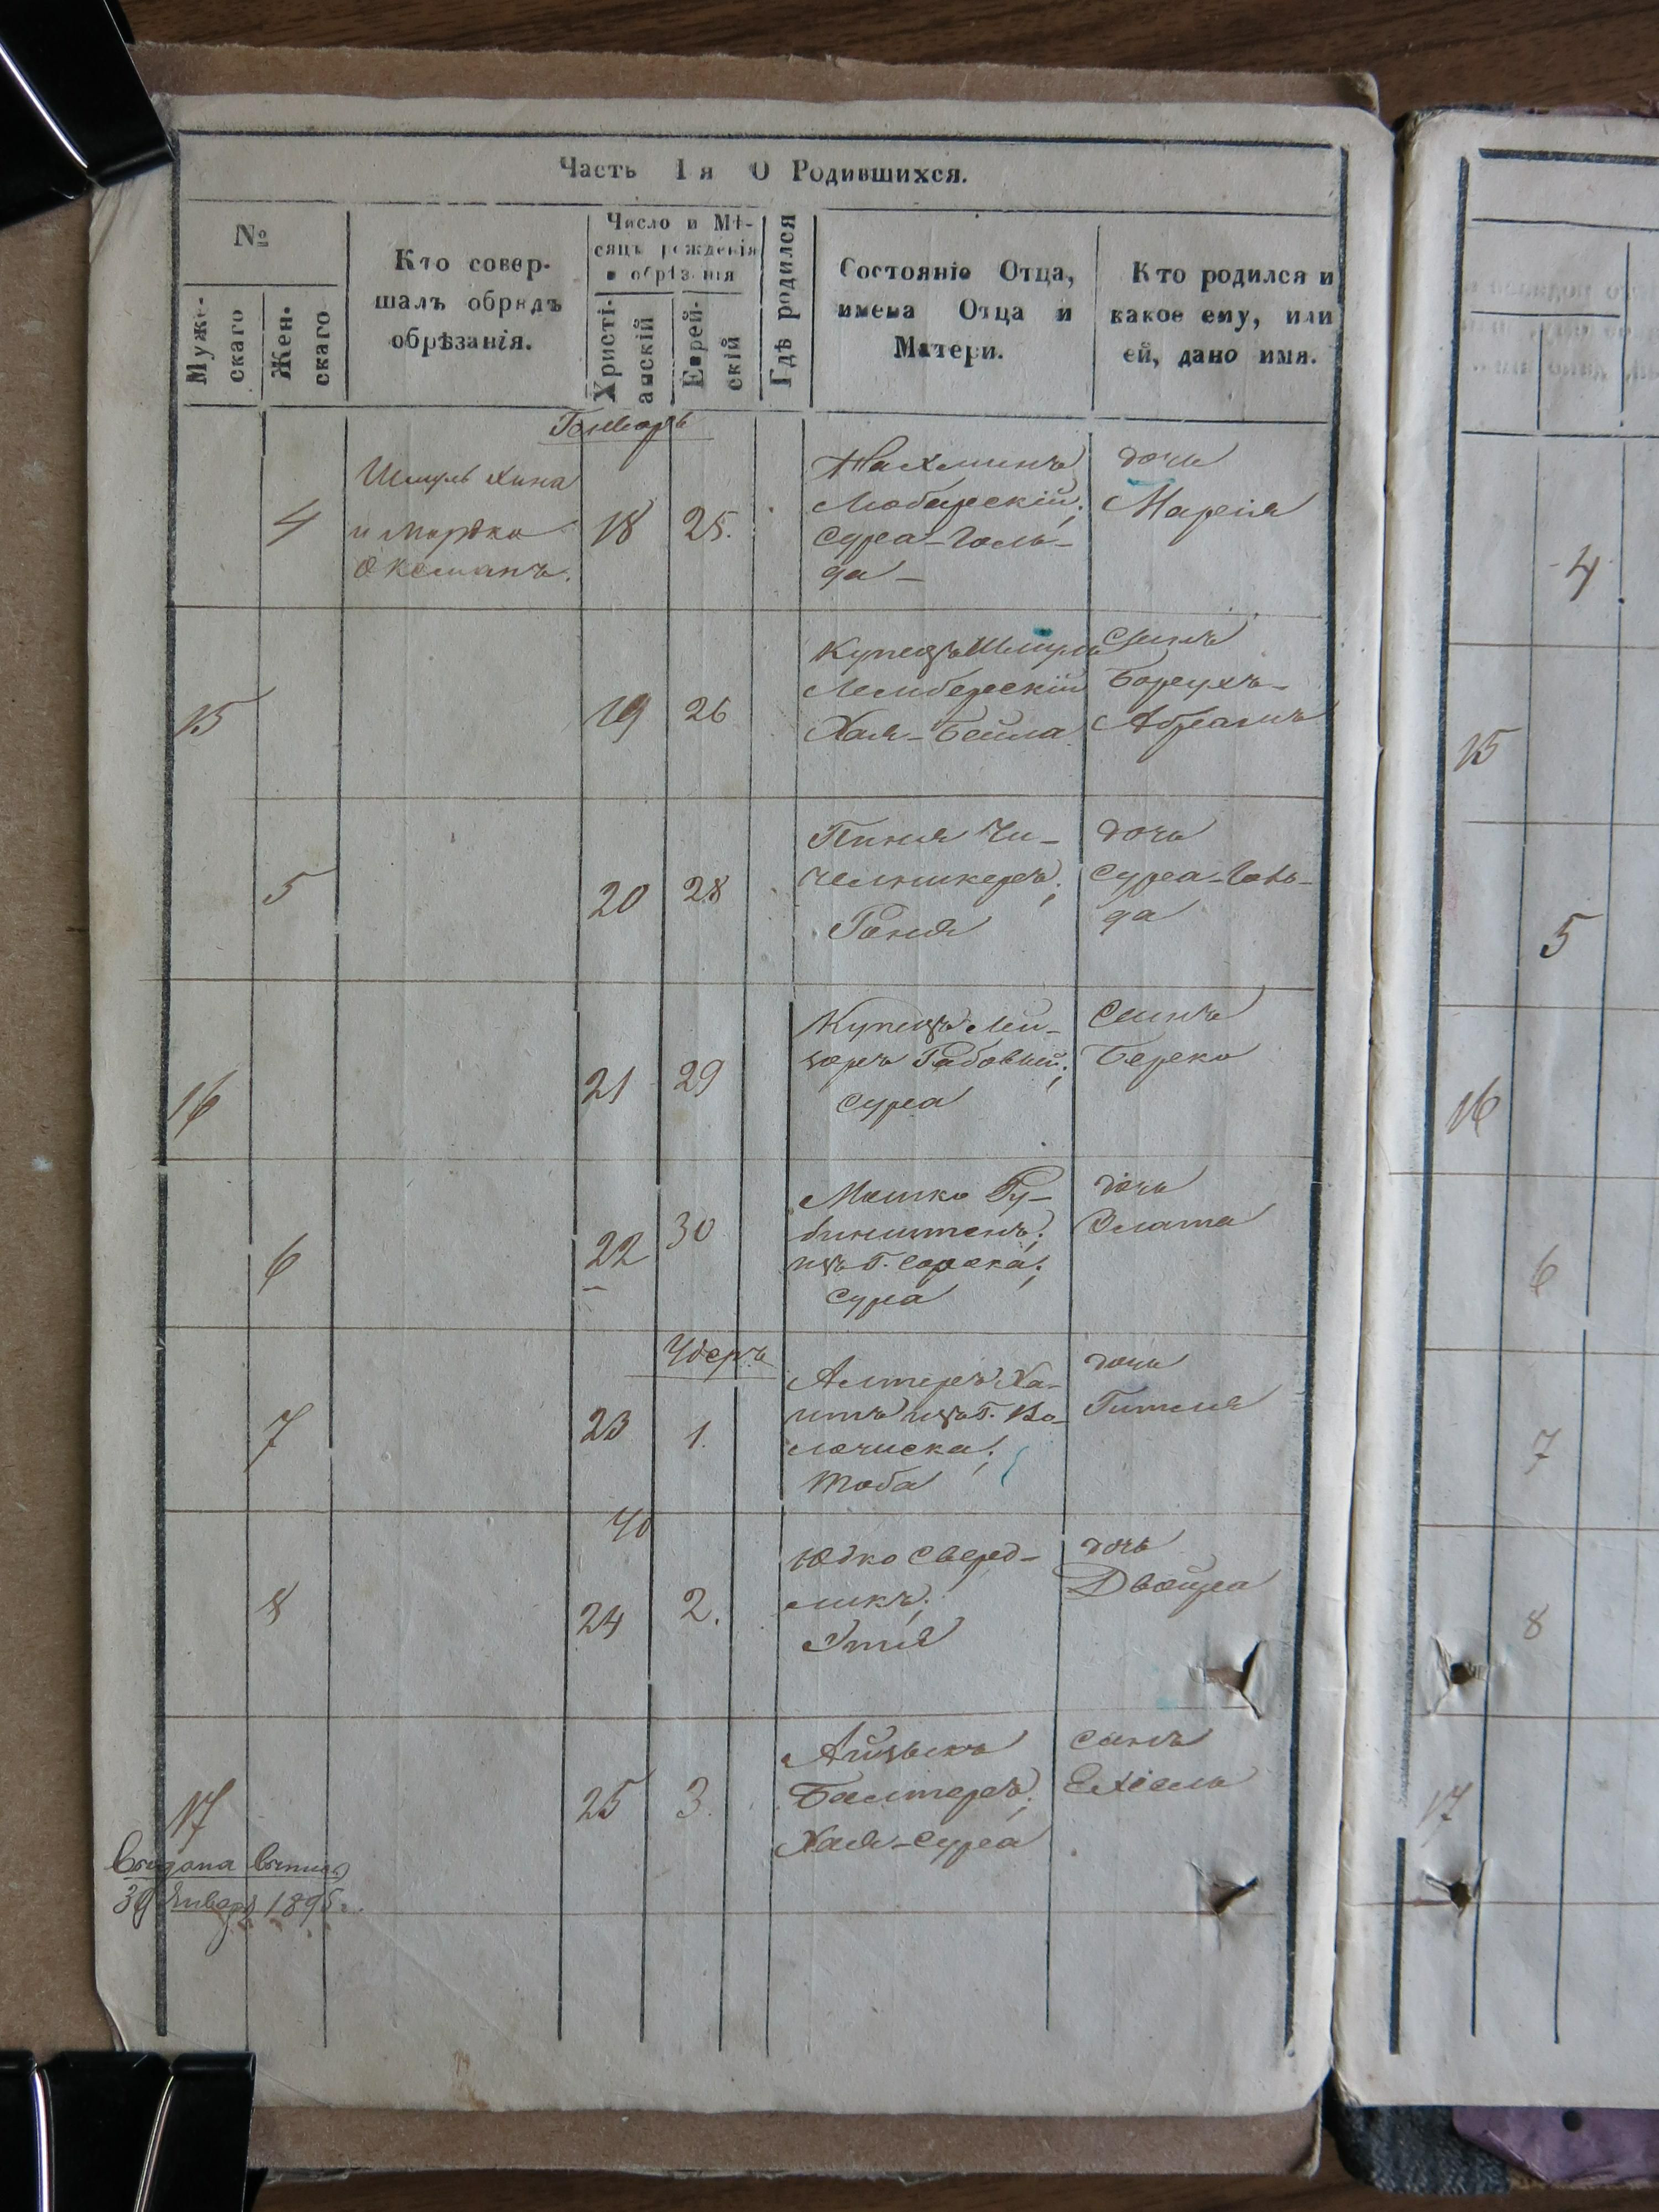 Часть 1 я О Родившихся.
№
Муже-
скаго
Жен-
скаго
Кто совер-
шалъ обрядъ
обрѣзанія.
Число и Мѣ-
сяцъ рожденія
и обрѣзанія
Христі-
анскій
Еврей-
скій
Гдѣ родился
Состояніе Отца,
имена Отца и
Матери.
Кто родился и
какое ему, или
ей, дано имя.
Январь
4
Шмуль Хина
и Мордко
Оксманъ.
18
25.
Нахминъ
Любарскій;
Сура-Голь-
да
дочь
Марсія
15
19
26
Купецъ Шмуль
Лембергскій
Хая-Бейла
Сынъ
Борухъ-
Абрамъ
5
20
28
Пиня Чи-
чельникеръ;
Раня
дочь
Сура-Голь-
да
16
21
29
Купецъ Лей-
зоръ Рабовый;
Сура
Сынъ
Берко
6
22
30
Мошко Ру-
бинштенъ;
изъ Г. Сорока;
Сура
дочь
Злата
Адеръ
7
23
1.
Алтеръ Ха-
итъ изъ Г. Во-
лочиска;
Тоба
дочь
Гитля
40
8
24
2.
Юдко Сверд-
ликъ;
Этя
дочь
Двойра
17
25
3.
Айзыкъ
Балтеръ;
Хая-Сура
сынъ
Ехіель
30 Января 1895 г.
4
15
5
16
6
7
8
17